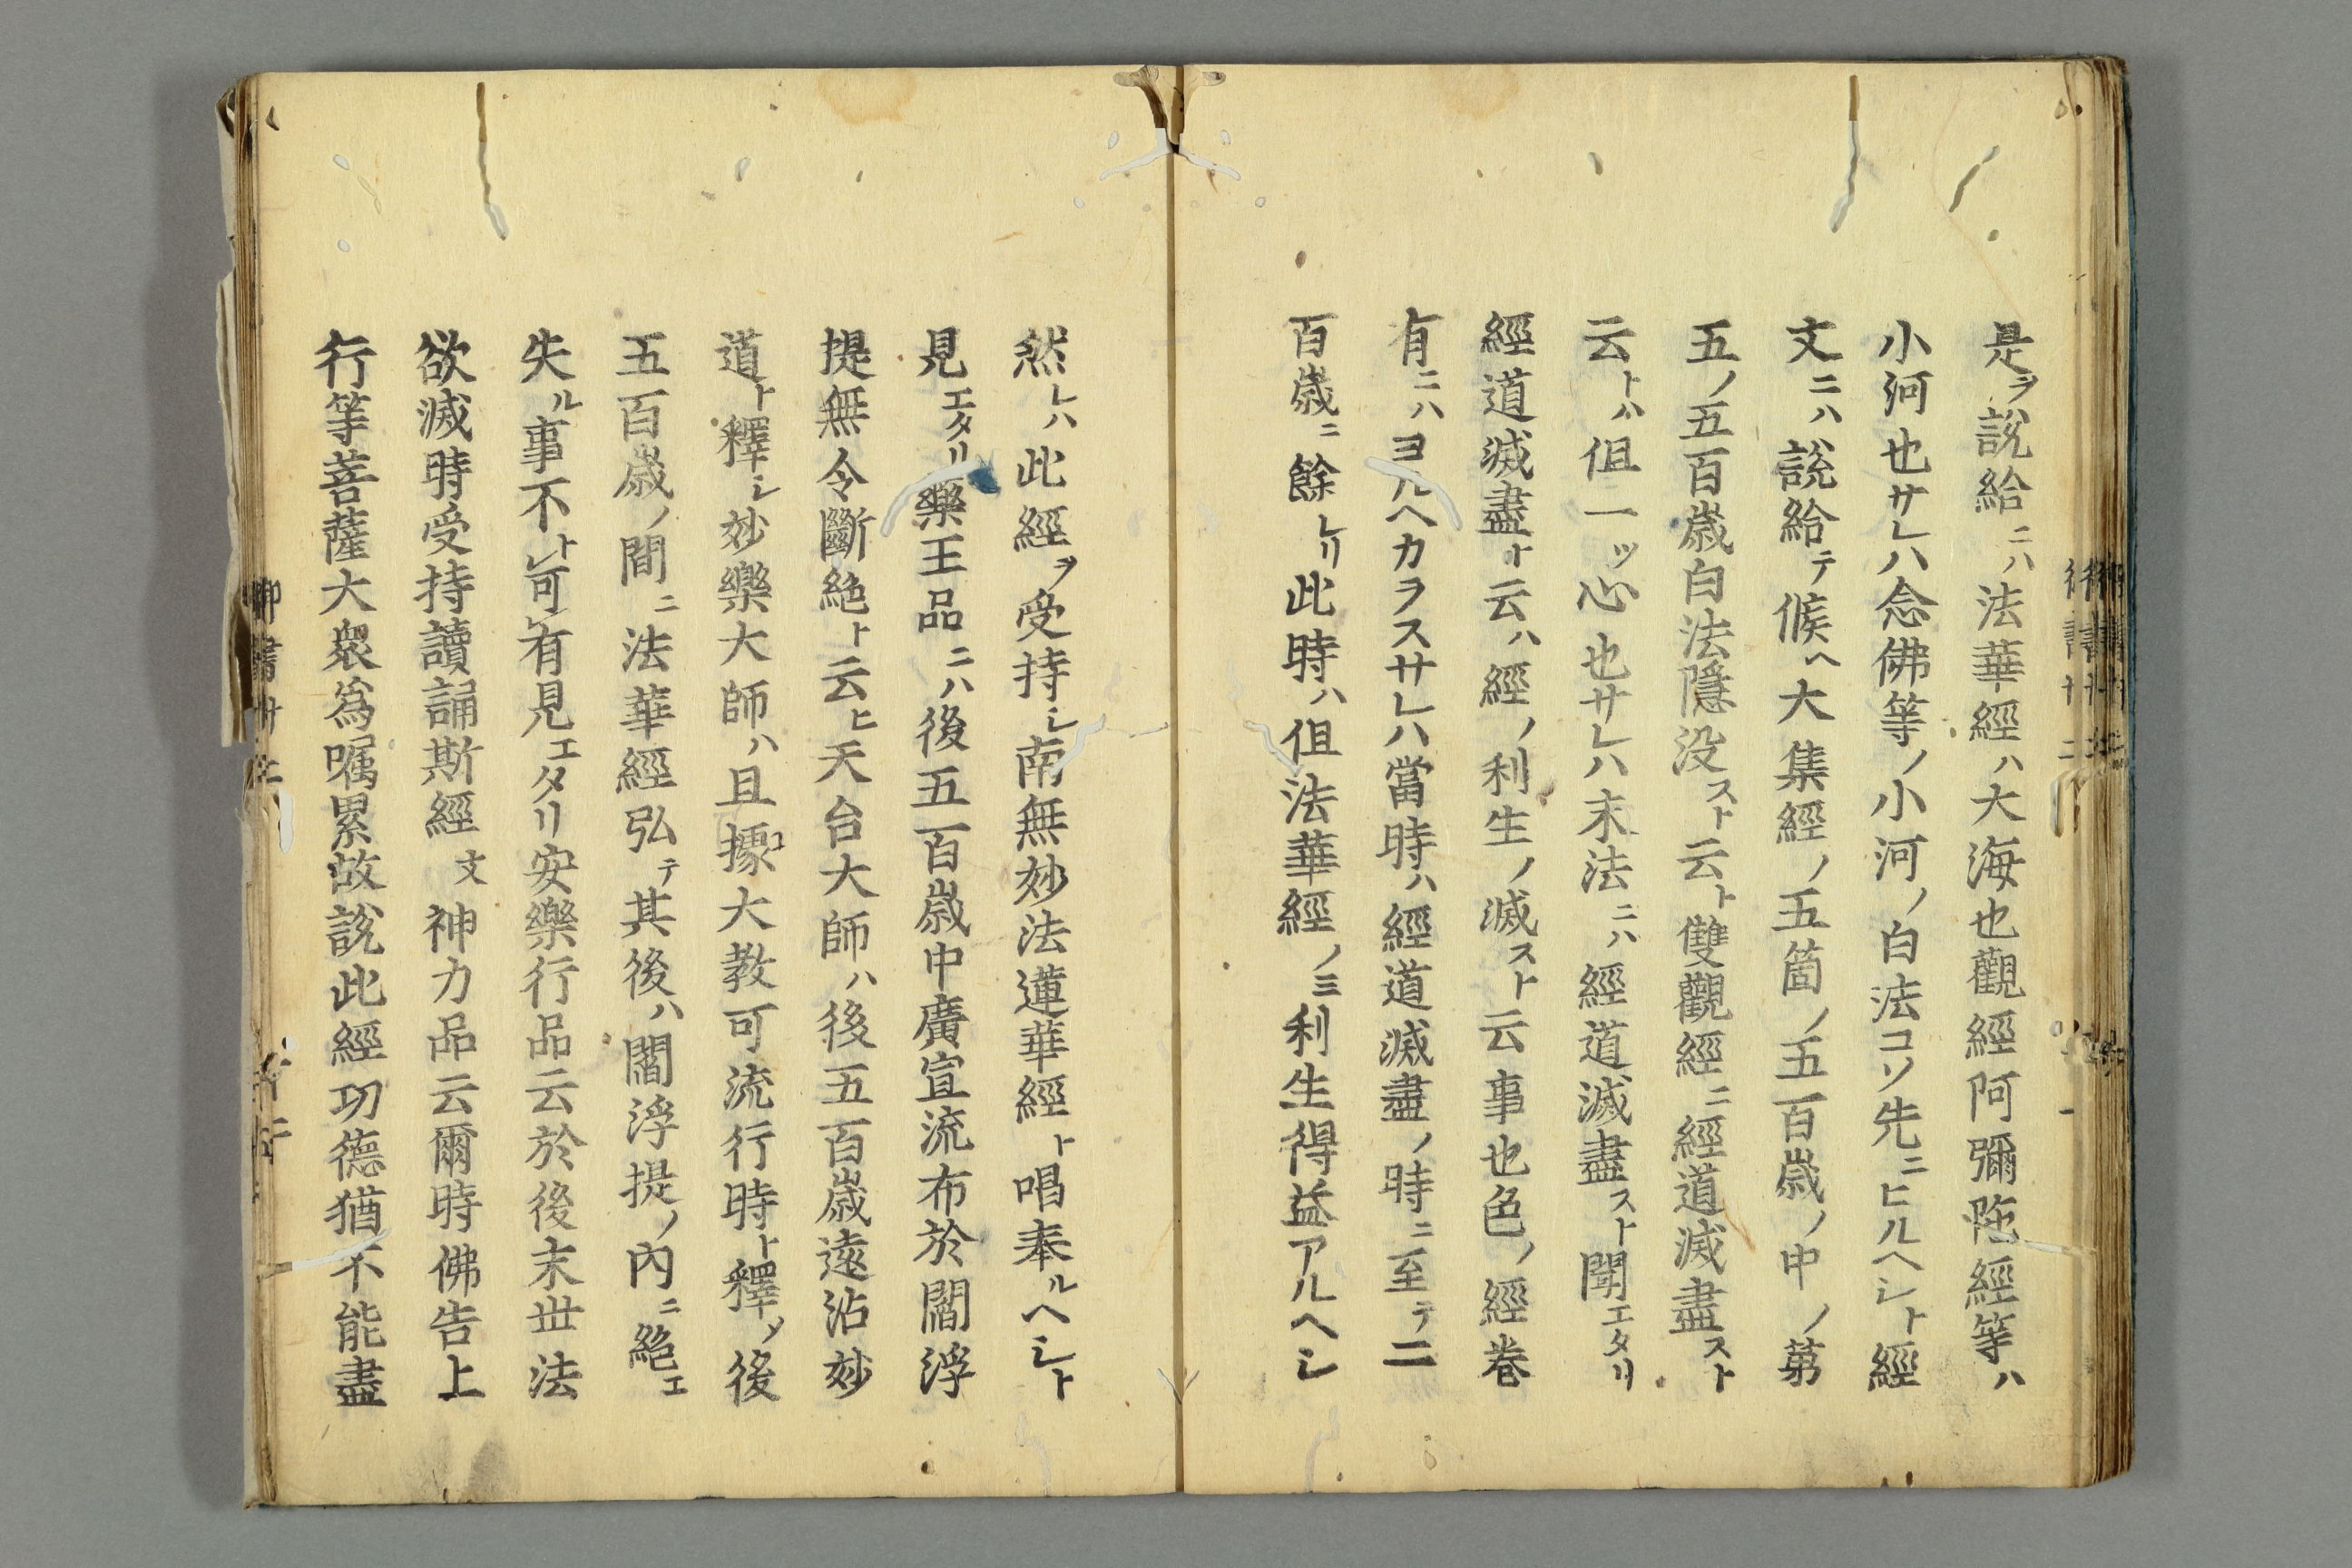 是ヲ說給ニハ法華經ハ大海也觀經阿彌陁經等ハ
小河也サレハ念佛等ノ小河ノ白法コソ先ニヒルヘシト經
文ニハ說給テ候ヘ大集經ノ五箇ノ五百歲ノ中ノ第
五ノ五百歲白法隱没スト云ト雙觀經ニ經道滅盡スト
云トハ但一ツ心也サレハ末法ニハ經道滅盡スト聞エタリ
經道滅盡ト云ハ經ノ利生ノ滅スト云事也色ノ經卷
有ニハヨルヘカラスサレハ當時ハ經道滅盡ノ時ニ至テ二
百歲ニ餘レリ此時ハ但法華經ノミ利生得益アルヘシ
然レハ此經ヲ受持シ南無妙法蓮華經ト唱奉ルヘシト
見エタリ藥王品ニハ後五百歲中廣宣流布於閻浮
提無令斷絕ト云ヒ天台大師ハ後五百歲遠沾妙
道ト釋シ妙樂大師ハ且據大教可流行時ト釋ソ後
五百歲ノ間ニ法華經弘テ其後ハ閻浮提ノ內ニ絕エ
失ル事不ト可レ有見エタリ安樂行品云於後末世法
欲滅時受持讀誦斯經文神力品云爾時佛告上
行等菩薩大衆爲囑累故說此經功德猶不能盡
御書卅二